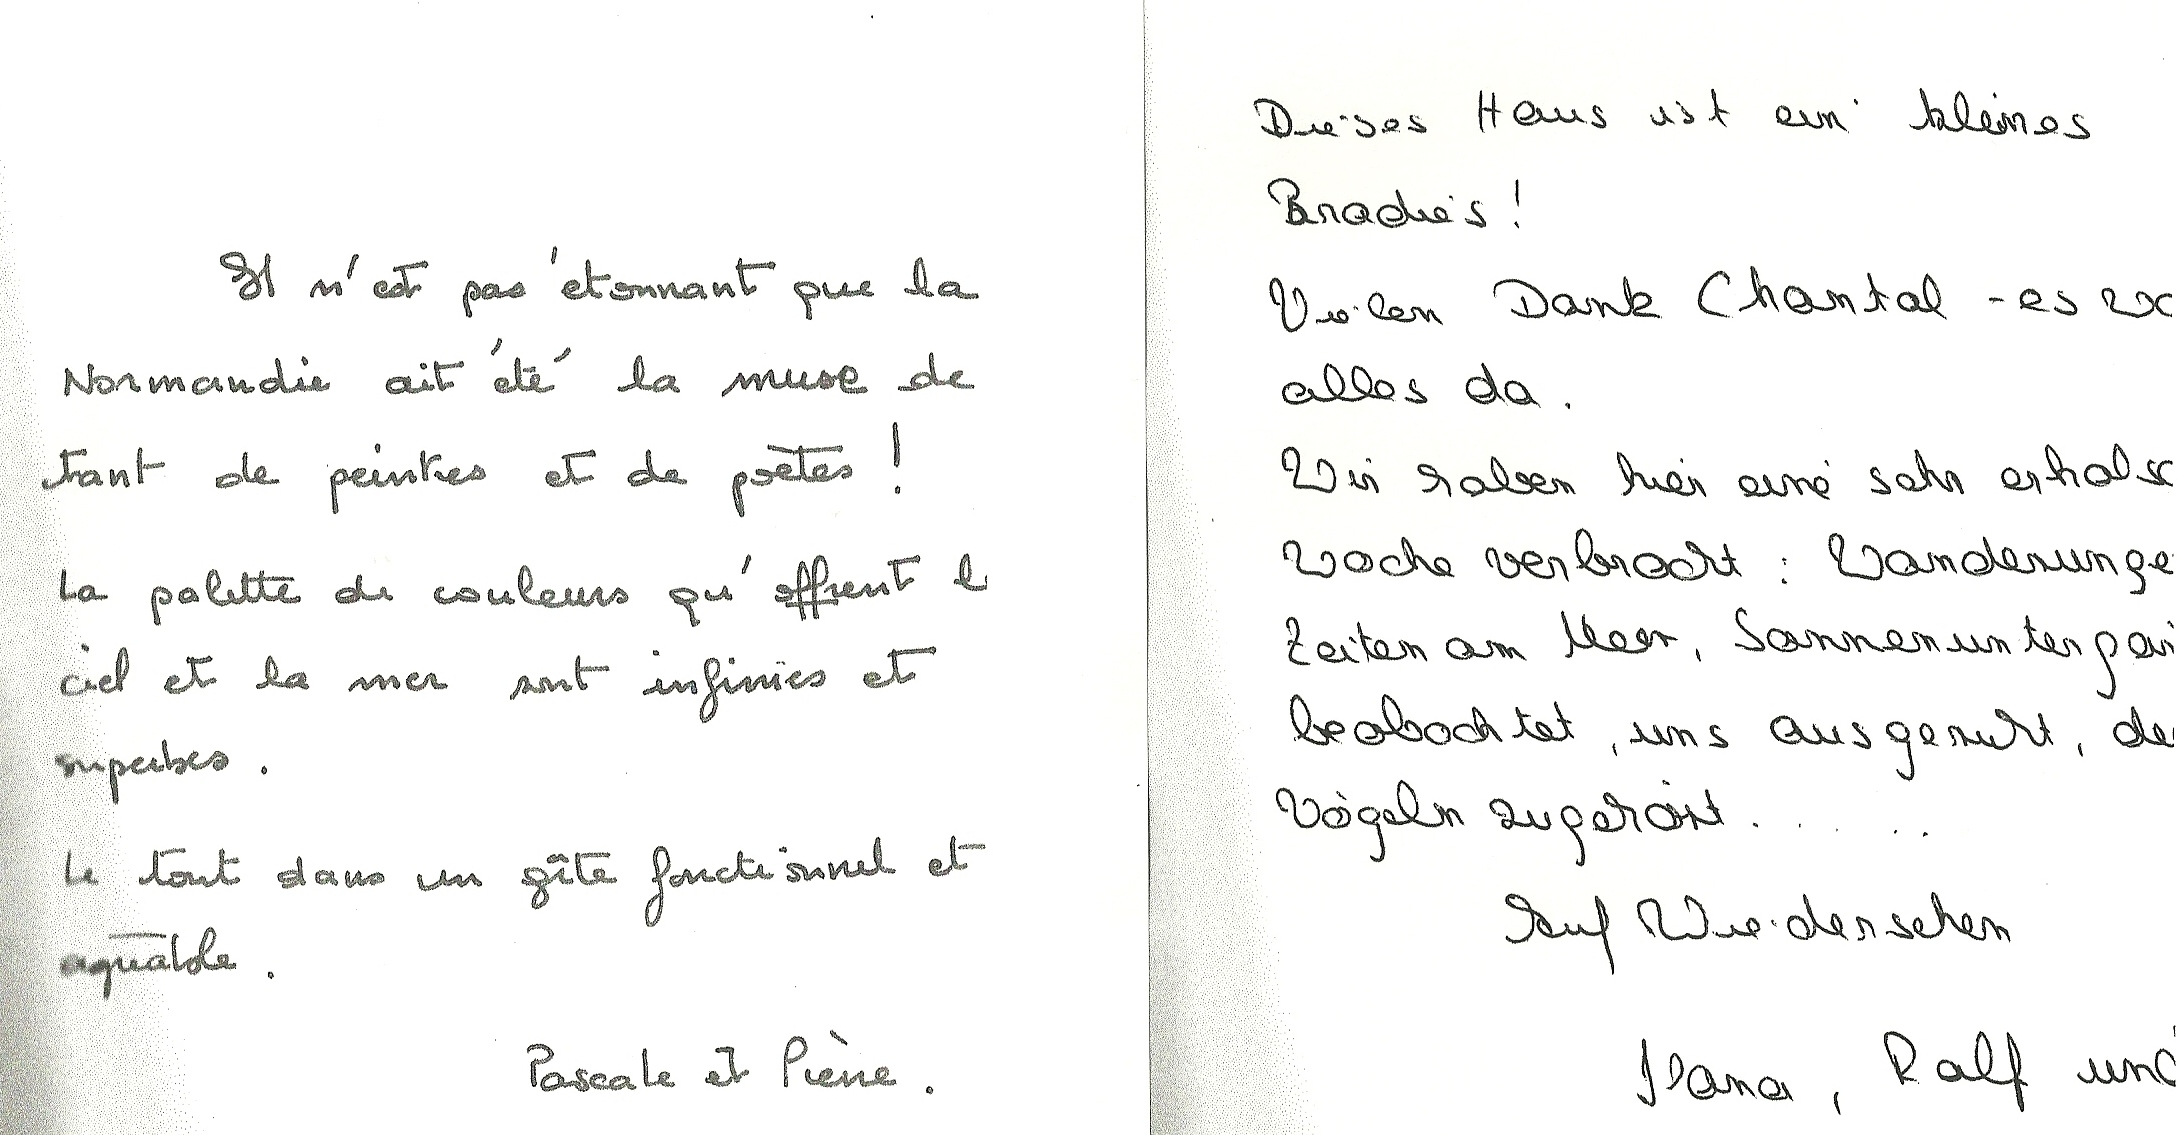 Il n'est pas étonnant que la
Normandie ait été la muse de
tant de peintres et de poètes !
La palette de couleurs qu'offrent l
ciel et la mer sont infinies et
superbes .
Le tout dans un gîte fonctionnel et
agréable .
Pascale et Pierre .
Dieses Haus ist ein kleines
Pradies !
Vielen Dank Chantal - es wa
alles da .
Wir haben hier eine sehr erholsa
Woche verbracht : Wanderunge
Zeiten am Meer, Sonnenuntergän
beobachtet, uns ausgeruht, de
Vögeln zugehört . . . . . .
Auf Wiedersehen
Ilana, Ralf und